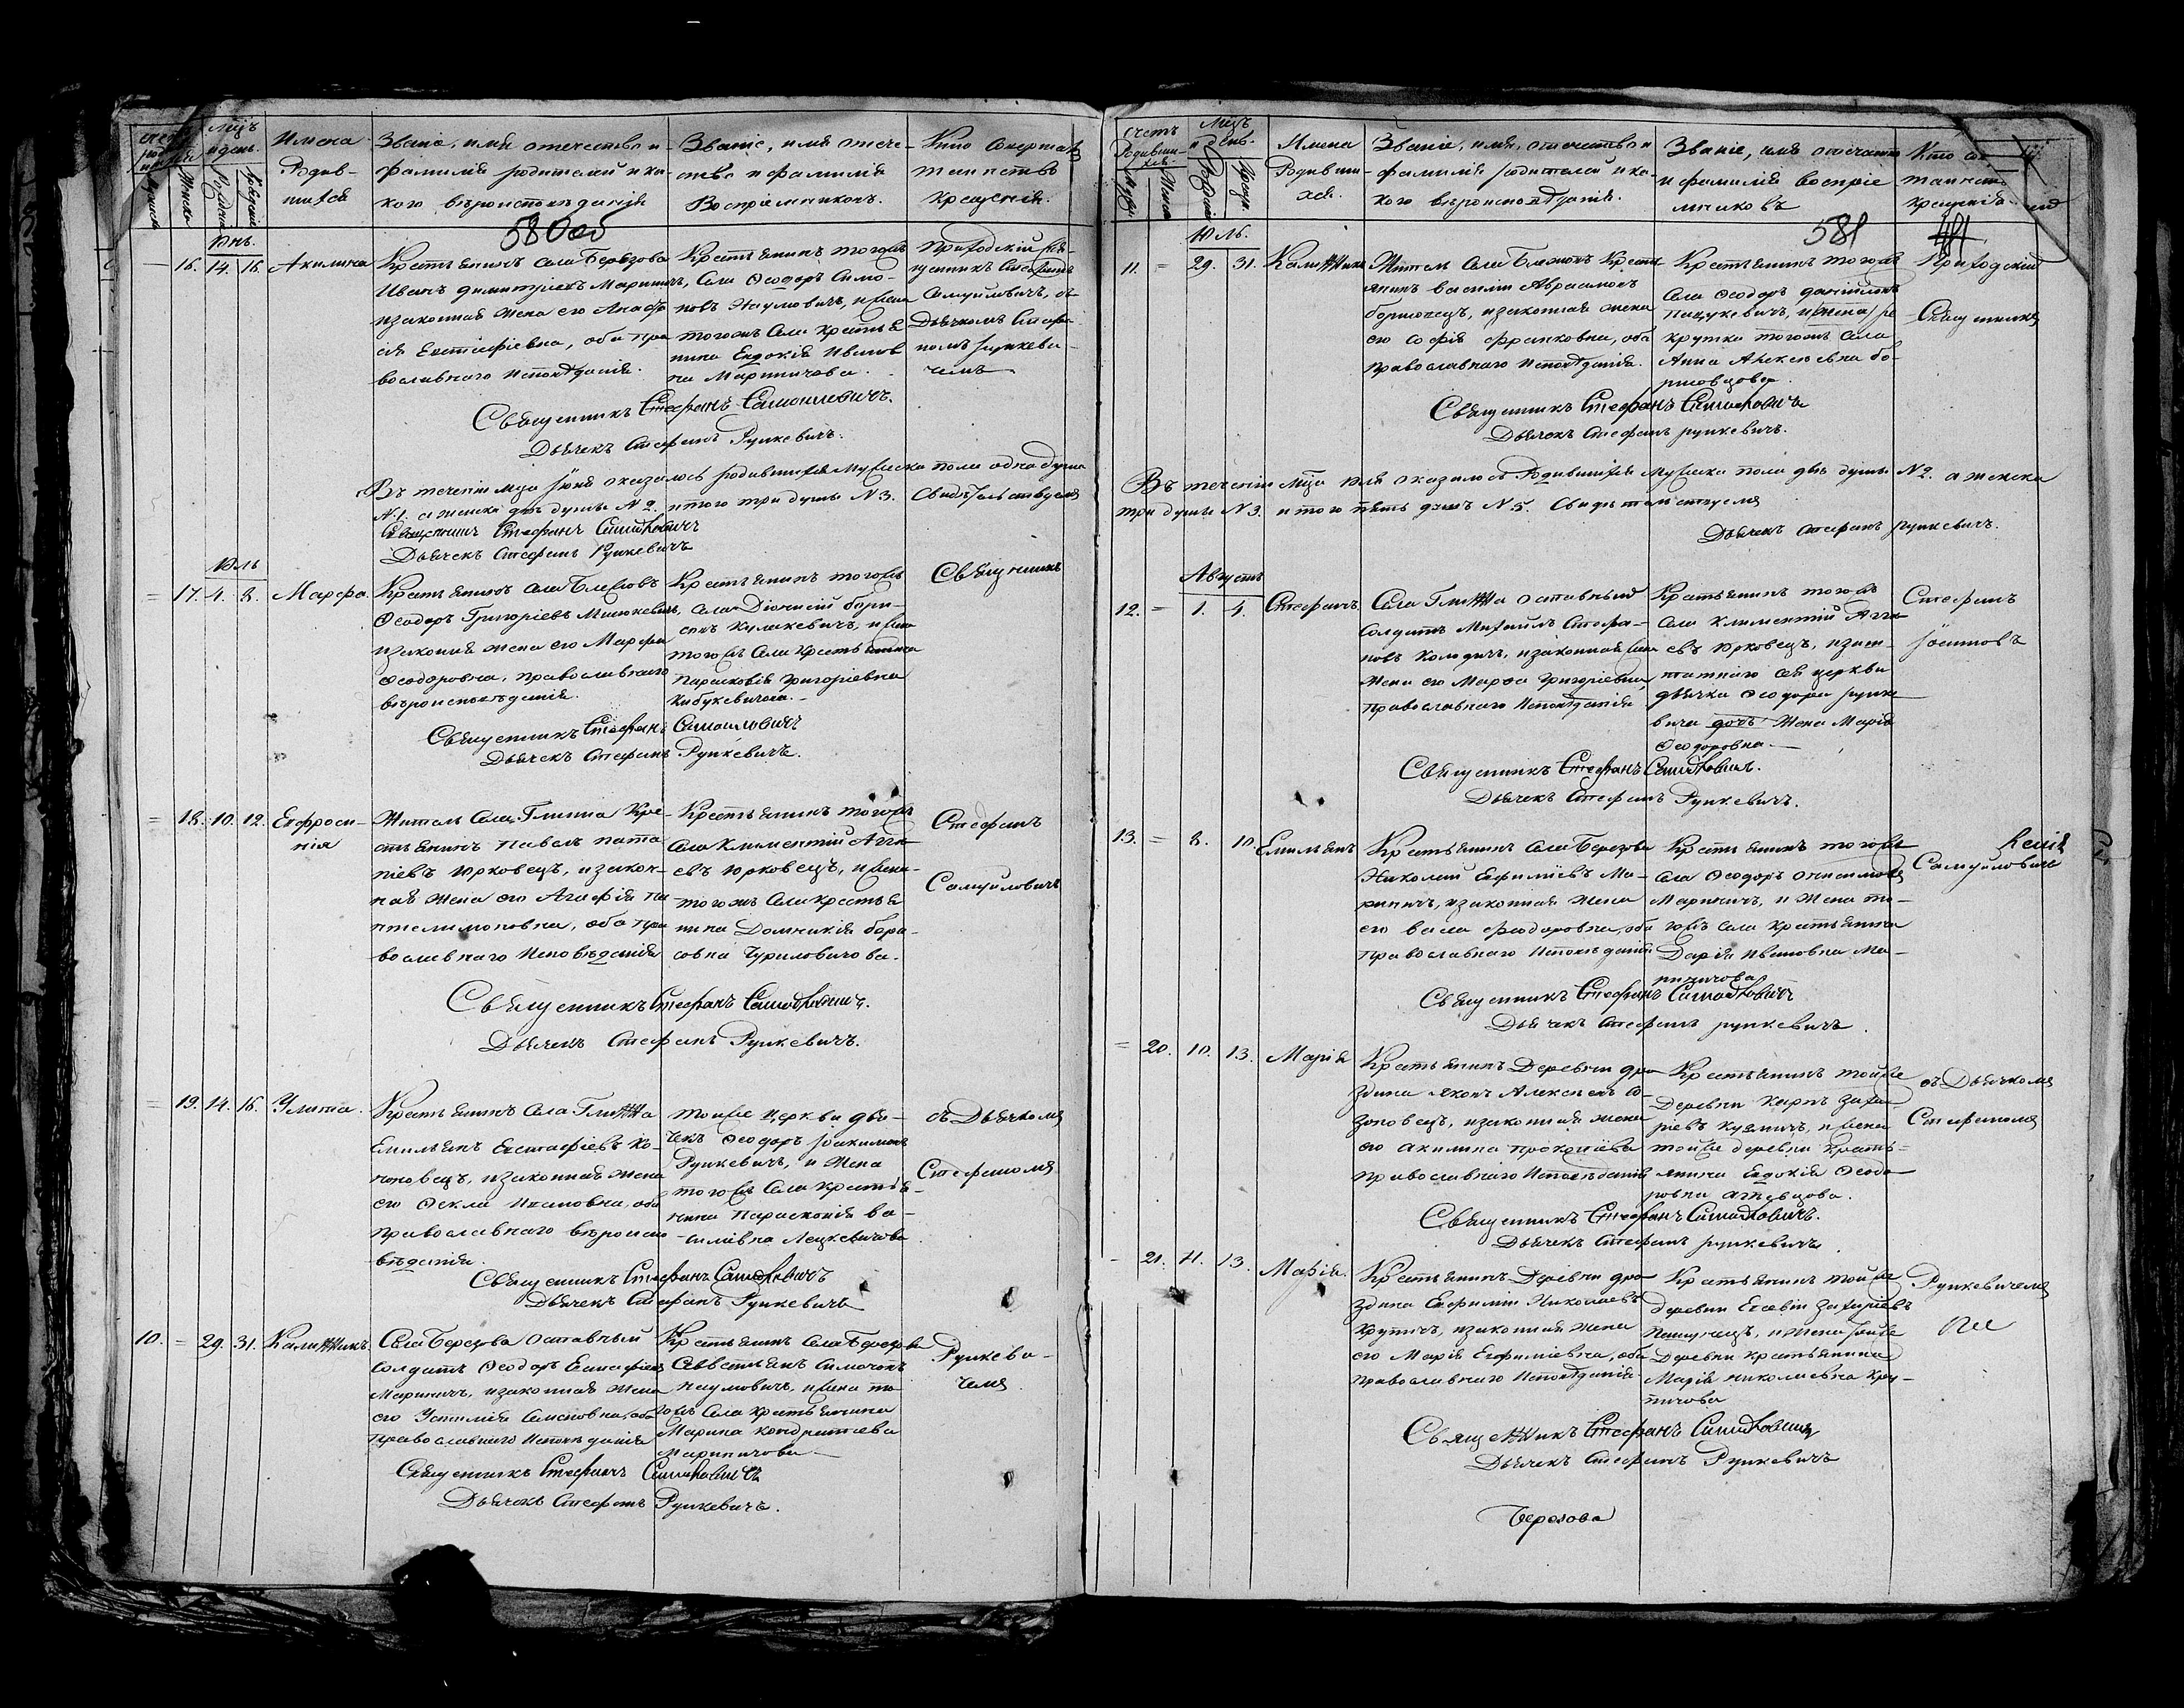 Имена
Родив-
шихся
Званіе, имя отечество и
фамилія родителей и ка-
кого вѣроисповѣданія
Званіе, имя отече-
ство и фамилія
Воспріемниковъ.
Кто Совершалъ
таинство
Крещенія.
580об
Юнь.
16. 14. 16. Акилина
Крестьянинъ села Берёзова
Иванъ Димитріевъ Мариничъ,
и законная жена его Анафа-
сія Евстафіевна, оба пра
вославнаго Исповѣданія.
Крестьянинъ тогожъ
Села Ѳеодоръ Симо-
новъ Наумовичъ, и жена
тогожъ Села крестья
нина Евдокія Иванов
на Мариничова.
Приходскій свя-
щенникъ Стефанъ
Самуйловичъ, съ
Дьячкомъ Стефа
номъ Рункеви-
чемъ
Священникъ Стефанъ Самойловичъ.
Дьячекъ Стефанъ Рункевичъ.
Въ теченіи мца Іюня оказалось родившихся мужеска пола одна душа
N.1. а женска двѣ души N 2. итого три души N 3. Свидѣтельствуемъ
Священникъ Стефанъ Самойловичъ
Дьячекъ Стефанъ Рункевичъ
Юль
17. 4. 8. Марфа.
Крестьянинъ села Блежовъ
Ѳеодоръ Григоріевъ Милюкевичъ,
и законная жена его Марфа
Ѳеодоровна, православнаго
вѣроисповѣданія.
Крестьянинъ тогожъ
Села Діонисій бори-
совъ Куликевичъ, и жена
тогожъ Села Крестьянина
Парасковія Григоріевна
Кибукевичова.
Священникъ
Священникъ Стефанъ Самойловичъ
Дьячекъ Стефанъ Рункевичъ.
18. 10. 12. Евфроси-
нія
Житель Села Глинна Кре-
стьянинъ Павелъ пата
піевъ Юрковецъ, и закон-
ная жена его Агафія па
нтелимоновна, оба пра
вославнаго Исповѣданія
Крестьянинъ тогожъ
Села Климентій Агге
евъ Юрковецъ, и жена-
тогожъ Села крестья
нина Домникія бори-
совна Чуриловичова.
Стефанъ
Самуйловичъ
Священникъ Стефанъ Самойловичъ.
Дьячекъ Стефанъ Рункевичъ.
19. 14. 16. Улита.
Крестьянинъ Села Глинна
Емильянъ Евстафіевъ Ко-
ноновецъ, и законная жена
его Ѳекла Ивановна, оба
православнаго вѣроиспо
вѣданія.
тойже церкви дья-
чекъ Ѳеодоръ Іоакимовъ
Рункевичъ, и жена
тогожъ Села крестья-
нина Парасковія ва-
силівна Лецкевичова
съ Дьячкомъ
Стефаномъ
Священникъ Стефанъ Самойловичъ
Дьячекъ Стефанъ Рункевичъ
10. 29. 31. Каленникъ.
Села Березова отставный
Солдатъ Ѳеодоръ Евстафіевъ
Мариничъ, и законная жена
его Устинія Семеновна, оба
православнаго Исповѣданія
Крестьянинъ Села Березова
Севестьянъ Симоновъ
Наумовичъ, и жена то
гожъ Села крестьянина
Марина Кондратіева
Мариничова
Рункеви-
чемъ
Священникъ Стефанъ Самойловичъ
Дьячекъ Стефанъ Рункевичъ.
Счетъ
Родивши-
хся
Мцъ
и день.
Имена
Родивши-
хся.
Званіе, имя, отечество и
фамилія родителей и ка-
кого вѣроисповѣданія.
Званіе, имя отечест
и фамилія воспріе
мниковъ
Кто со
таинст
Крещенія.
581
Юль.
11. 29. 31. Каленникъ
Житель Села Блежовъ Крест
янинъ Василій Абрамовъ
борисовецъ, и законная жена
его Софія Франковна, оба
православнаго Исповѣданія.
Крестьянинъ тогожъ
Села Ѳеодоръ Даніиловъ
Пащукевичъ, и жена ре
крутка тогожъ Села
Анна Алексѣевна бо-
рисовцова.
Приходскій
Священникъ
Священникъ Стефанъ Самойловичъ
Дьячекъ Стефанъ Рункевичъ.
Въ теченіи мца Юля оказалось Родившихся мужеска пола двѣ души N 2. а женска
три души N 3. итого пять душъ N 5. Свидѣтельствуемъ
Дьячекъ Стефанъ Рункевичъ.
Августъ
12. 1. 4. Стефанъ.
Села Глинна отставный
Солдатъ Михаилъ Стефа-
новъ Колодичъ, и законная
жена его Марфа Григоріевна,
православнаго Исповѣданія
Крестьянинъ тогожъ
Села Климентій Агге
евъ Юрковецъ, и заш-
татнаго сей церкви
дьячка Ѳеодора Рунке
вича дочь жена Марія
Ѳеодоровна.
Стефанъ
Іосифовъ
Священникъ Стефанъ Самойловичъ.
Дьячекъ Стефанъ Рункевичъ.
13. 8. 10. Емильянъ
Крестьянинъ Села Березова
Николай Евфиміевъ Ма-
риничъ, и законная жена
его Васса Федоровна, оба
православнаго Исповѣданія
Крестьянинъ тогожъ
Села Ѳеодоръ Онисимовъ
Мариничъ, и жена то-
гожъ Села крестьянина
Дарія Ивановна Ма-
риничова
Самуйловичъ
Священникъ Стефанъ Самойловичъ
Дьячекъ Стефанъ Рункевичъ.
20. 10. 13. Марія
Крестьянинъ Деревни Дро
здина Яковъ Алексѣевъ Со-
зоновецъ, и законная жена
его Акилина Прокопіева
православнаго Исповѣданія
Крестьянинъ тойже
Деревни Карпъ Заха
ріевъ Кузмичъ, и жена
тойже деревни кресть-
янина Евдокія Ѳеодо
ровна
съ Дьячкомъ
Стефаномъ
Священникъ Стефанъ Самойловичъ.
Дьячекъ Стефанъ Рункевичъ.
21. 11. 13. Марія.
Крестьянинъ Деревни Дро
здина Евфимій Николаевъ
Крупичъ, и законная жена
его Марія Евфиміевна, оба
православнаго Исповѣданія
Крестьянинъ тойже
деревни Евсевій Захаріевъ
и жена тойже
Деревни крестьянина
Марія Николаевна Кру-
пичова
Рункевичемъ
Священникъ Стефанъ Самойловичъ
Дьячекъ Стефанъ Рункевичъ
Березова